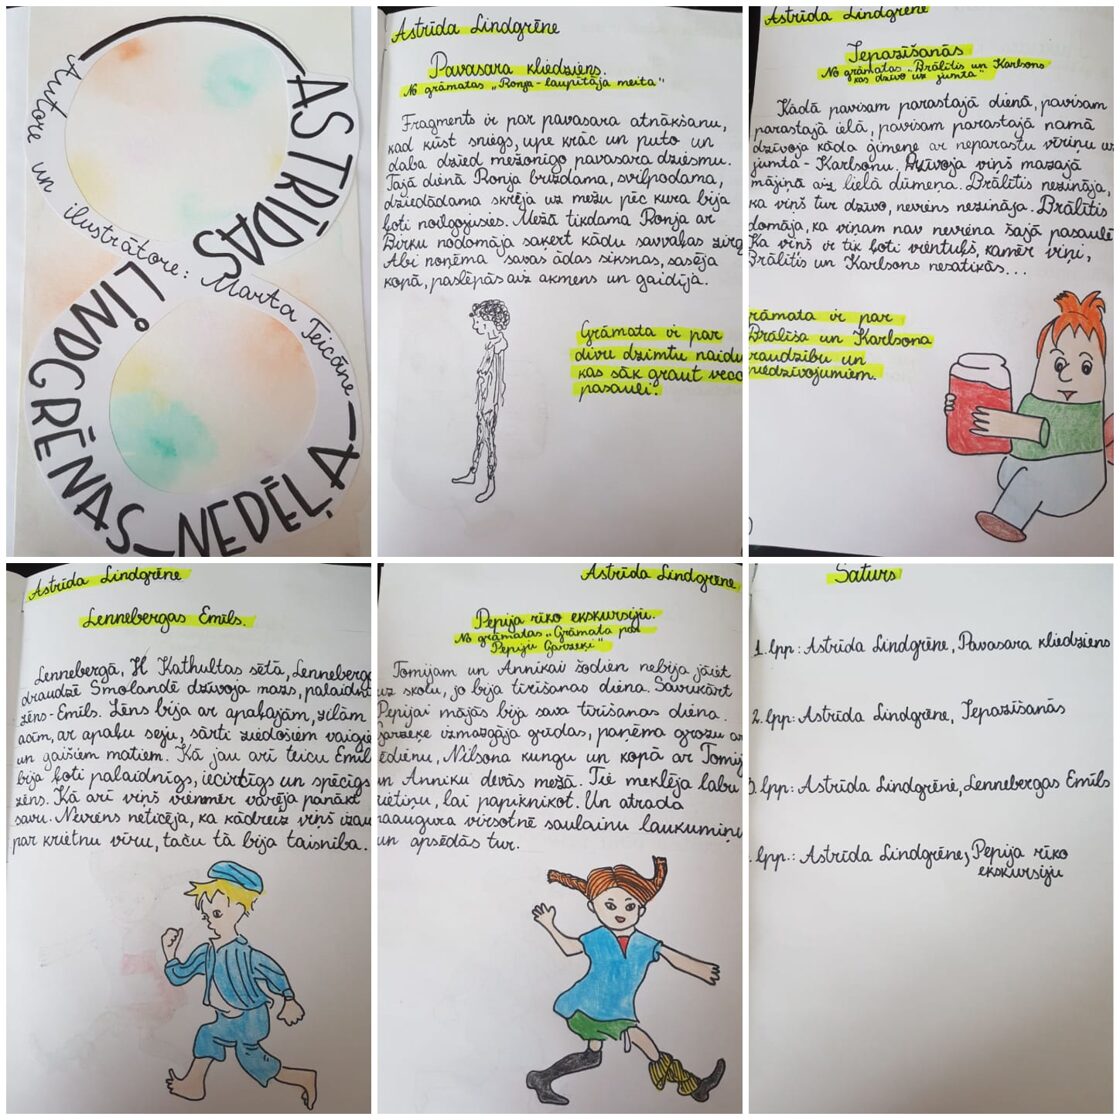 ASTRĪDAS
LINDGRĒNAS NEDĒĻA
Autore un
ilustrātore: Marta Teicāne
Astrīda Lindgrēne
Pavasara kliedziens.
No grāmatas „Ronja-laupītāja meita"
Fragments ir par pavasara atnākšanu,
kad kūst sniegs, upe krāc un puto un
daba dzied mežonīgo pavasara dziesmu.
Tajā dienā Ronja bruzdama, svilpodama,
dziedādama skrēja uz mežu pēc kura bija
ļoti noilgojusies. Mežā tikdama Ronja ar
Birku nodomāja saķert kādu savvaļas zirg
Abi noņēma savas ādas siksnas, sasēja
kopā, paslēpās aiz akmens un gaidīja.
Grāmata ir par
divu dzimtu naidu
kas sāk graut veco
pasauli.
Astrīda Lindgrēne
Iepazīšanās
No grāmatas „Brālītis un Karlsons
kas dzīvo uz jumta"
Kādā pavisam parastajā dienā, pavisam
parastajā ielā, pavisam parastajā namā
dzīvoja kāda ģimene ar neparastu vīriņu uz
jumta - Karlsonu. Dzīvoja viņš mazajā
mājiņā aiz lielā dūmeņa. Brālītis nezināja,
ka viņš tur dzīvo, neviens nezināja. Brālītis
domāja, ka viņam nav neviena šajā pasaulē
Ka viņš ir tik ļoti vientuļš, kamēr viņi,
Brālītis un Karlsons nesatikās...
rāmata ir par
Brālīša un Karlsona
raudzību un
iedzīvojumiem.
Astrīda Lindgrēne
Lennebergas Emīls.
Lennebergā, H Kathultas sētā, Lenneberga
draudzē Smolandē dzīvoja mazs, palaidn
zēns - Emīls. Zēns bija ar apaļajām, zilām
acīm, ar apaļu seju, sārti ziedošiem vaigie
un gaišiem matiem. Kā jau arī teicu Emīl
bija ļoti palaidnīgs, iecirtīgs un spēcīgs
zēns. Kā arī viņš vienmēr varēja panākt
savu. Neviens neticēja, ka kādreiz viņš izau
par krietnu vīru, taču tā bija taisnība.
Astrīda Lindgrēne
Pepija rīko ekskursiju.
No grāmatas „Grāmata par
Pepiju Garzeķi"
Tomijam un Annikai šodien nebija jāiet
uz skolu, jo bija tīrīšanas diena. Savukārt
Pepijai mājās bija sava tīrīšanas diena.
Garzeķe izmazgāja grīdas, paņēma grozu ar
ēdienu, Nilsona kungu un kopā ar Tomij
un Anniku devās mežā. Tie meklēja labu
vietiņu, lai papiknikot. Un atrada
paaugura virsotnē saulainu laukumiņu
un apsēdās tur.
Saturs
1. lpp: Astrīda Lindgrēne, Pavasara kliedziens
2. lpp: Astrīda Lindgrēne, Iepazīšanās
3. lpp: Astrīda Lindgrēne, Lennebergas Emīls
. lpp.: Astrīda Lindgrēne, Pepija rīko
ekskursiju